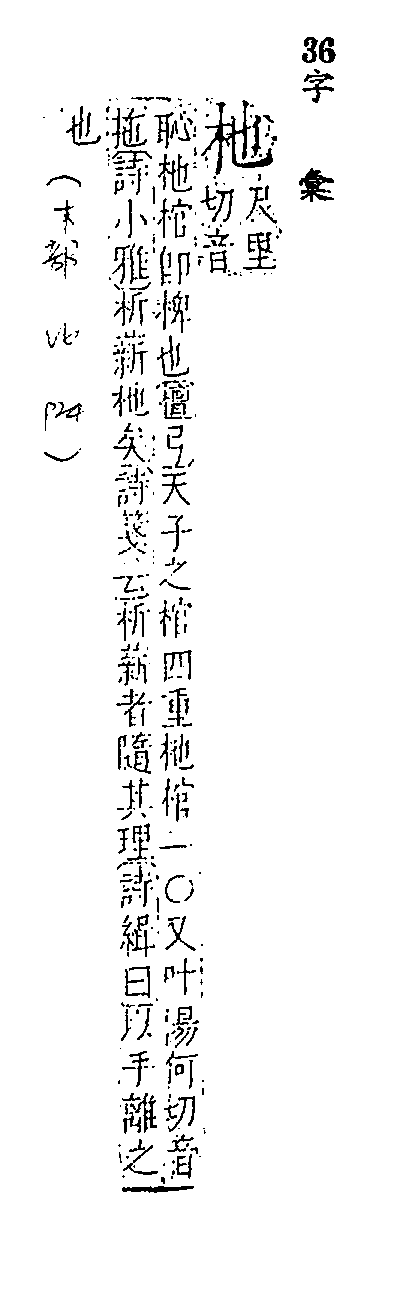 36字彙
杝尺里
切音
恥杝棺卽椑也檀弓天子之棺四重杝棺一〇又叶湯何切音
拖詩小雅析薪杝矣詩箋云析薪者隨其理詩緝曰以手離之
也(木部 P24)